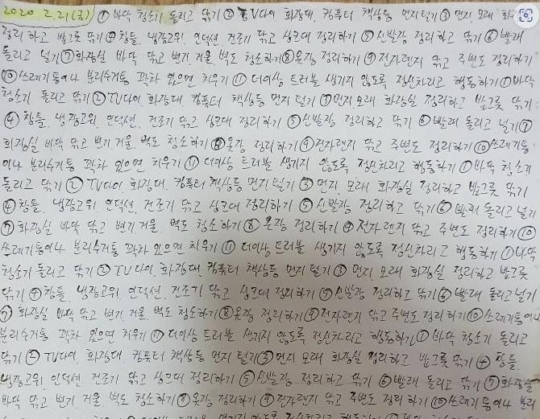 2020 2.21(금) ① 바닥 청소기 돌리고 닦기 ② TV다이 화장대, 컴퓨터 책상등 먼지털기 ③ 먼지, 모래 화장실
정리하고 밥그릇 닦기 ④ 창틀, 냉장고위, 인덕션, 건조기 닦고 싱크대 정리하기 ⑤ 신발장 정리하고 닦기 ⑥ 빨래
돌리고 널기 ⑦ 화장실 바닥 닦고 변기 거울 벽도 청소하기 ⑧ 옷장 정리하기 ⑨ 전자렌지 닦고 주변도 정리하기
⑩ 쓰레기통이나 분리수거통 꽉차 있으면 치우기 ⑪ 더이상 트러블 생기지 않도록 정신차리고 행동하기 ① 바닥
청소기 돌리고 닦기 ② TV다이 화장대, 컴퓨터 책상등 먼지털기 ③ 먼지 모래 화장실 정리하고 밥그릇 닦기
④ 창틀, 냉장고위, 인덕션, 건조기 닦고 싱크대 정리하기 ⑤ 신발장 정리하고 닦기 ⑥ 빨래 돌리고 널기 ⑦
화장실 바닥 닦고 변기 거울 벽도 청소하기 ⑧ 옷장 정리하기 ⑨ 전자렌지 닦고 주변도 정리하기 ⑩ 쓰레기통
이나 분리수거통 꽉차 있으면 치우기 ⑪ 더이상 트러블 생기지 않도록 정신차리고 행동하기 ① 바닥 청소기
돌리고 닦기 ② TV다이, 화장대, 컴퓨터 책상등 먼지 털기 ③ 먼지 모래 화장실 정리하고 밥그릇 닦기
④ 창틀, 냉장고위, 인덕션, 건조기 닦고 싱크대 정리하기 ⑤ 신발장 정리하고 닦기 ⑥ 빨래 돌리고 널기
⑦ 화장실 바닥 닦고 변기 거울 벽도 청소하기 ⑧ 옷장 정리하기 ⑨ 전자렌지 닦고 주변도 정리하기 ⑩
쓰레기통이나 분리수거통 꽉차 있으면 치우기 ⑪ 더이상 트러블 생기지 않도록 정신차리고 행동하기 ① 바닥
청소기 돌리고 닦기 ② TV다이, 화장대, 컴퓨터 책상등 먼지 털기 ③ 먼지 모래 화장실 정리하고 밥그릇
닦기 ④ 창틀, 냉장고위, 인덕션, 건조기 닦고 싱크대 정리하기 ⑤ 신발장 정리하고 닦기 ⑥ 빨래 돌리고 널기
⑦ 화장실 바닥 닦고 변기 거울 벽도 청소하기 ⑧ 옷장 정리하기 ⑨ 전자렌지 닦고 주변도 정리하기 ⑩ 쓰레기통이나
분리수거통 꽉차 있으면 치우기 ⑪ 더이상 트러블 생기지 않도록 정신차리고 행동하기 ① 바닥 청소기 돌리고
닦기 ② TV다이 화장대, 컴퓨터 책상등 먼지 털기 ③ 먼지 모래 화장실 정리하고 밥그릇 닦기 ④ 창틀
냉장고위 인덕션 건조기 닦고 싱크대 정리하기 ⑤ 신발장 정리하고 닦기 ⑥ 빨래 돌리고 널기 ⑦ 화장실
바닥 닦고 변기 거울 벽도 청소하기 ⑧ 옷장 정리하기 ⑨ 전자렌지 닦고 주변도 정리하기 ⑩ 쓰레기통이나 분리